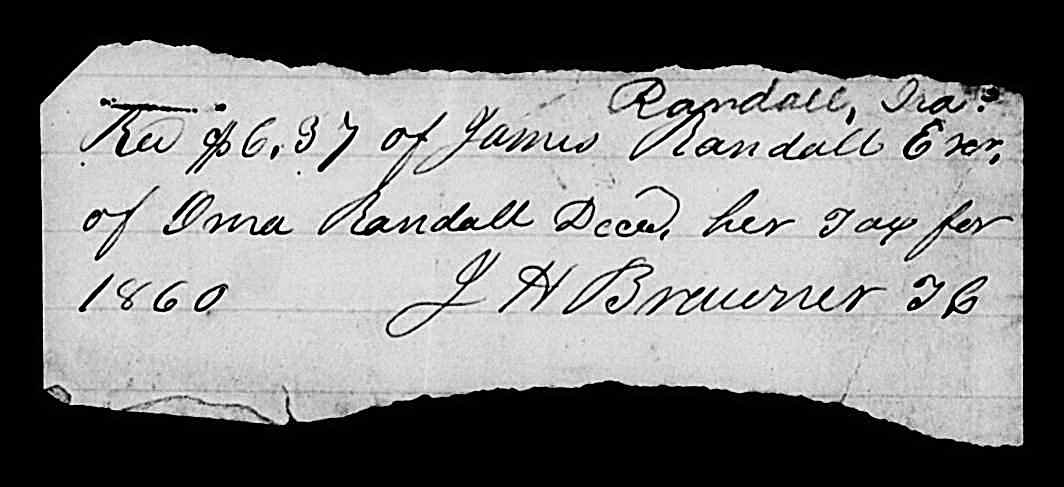 Randall, Ira.
Recd $6.37 of James Randall Exor,
of Oma Randall Decd, her Tax for
1860 J H Brawner T C